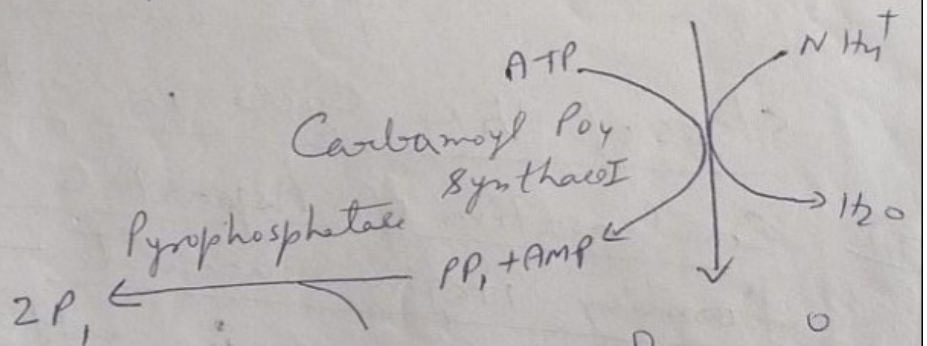 ATP NH4+
Carbamoyl Po4
SynthaseI
H2O
Pyrophosphatase
PPi + AMP
2Pi
O